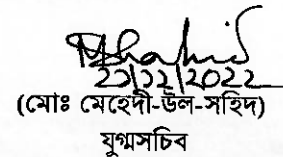 ২০/১২/2022
(মোঃ মেহেদী-উল-সহিদ)
যুগ্মসচিব